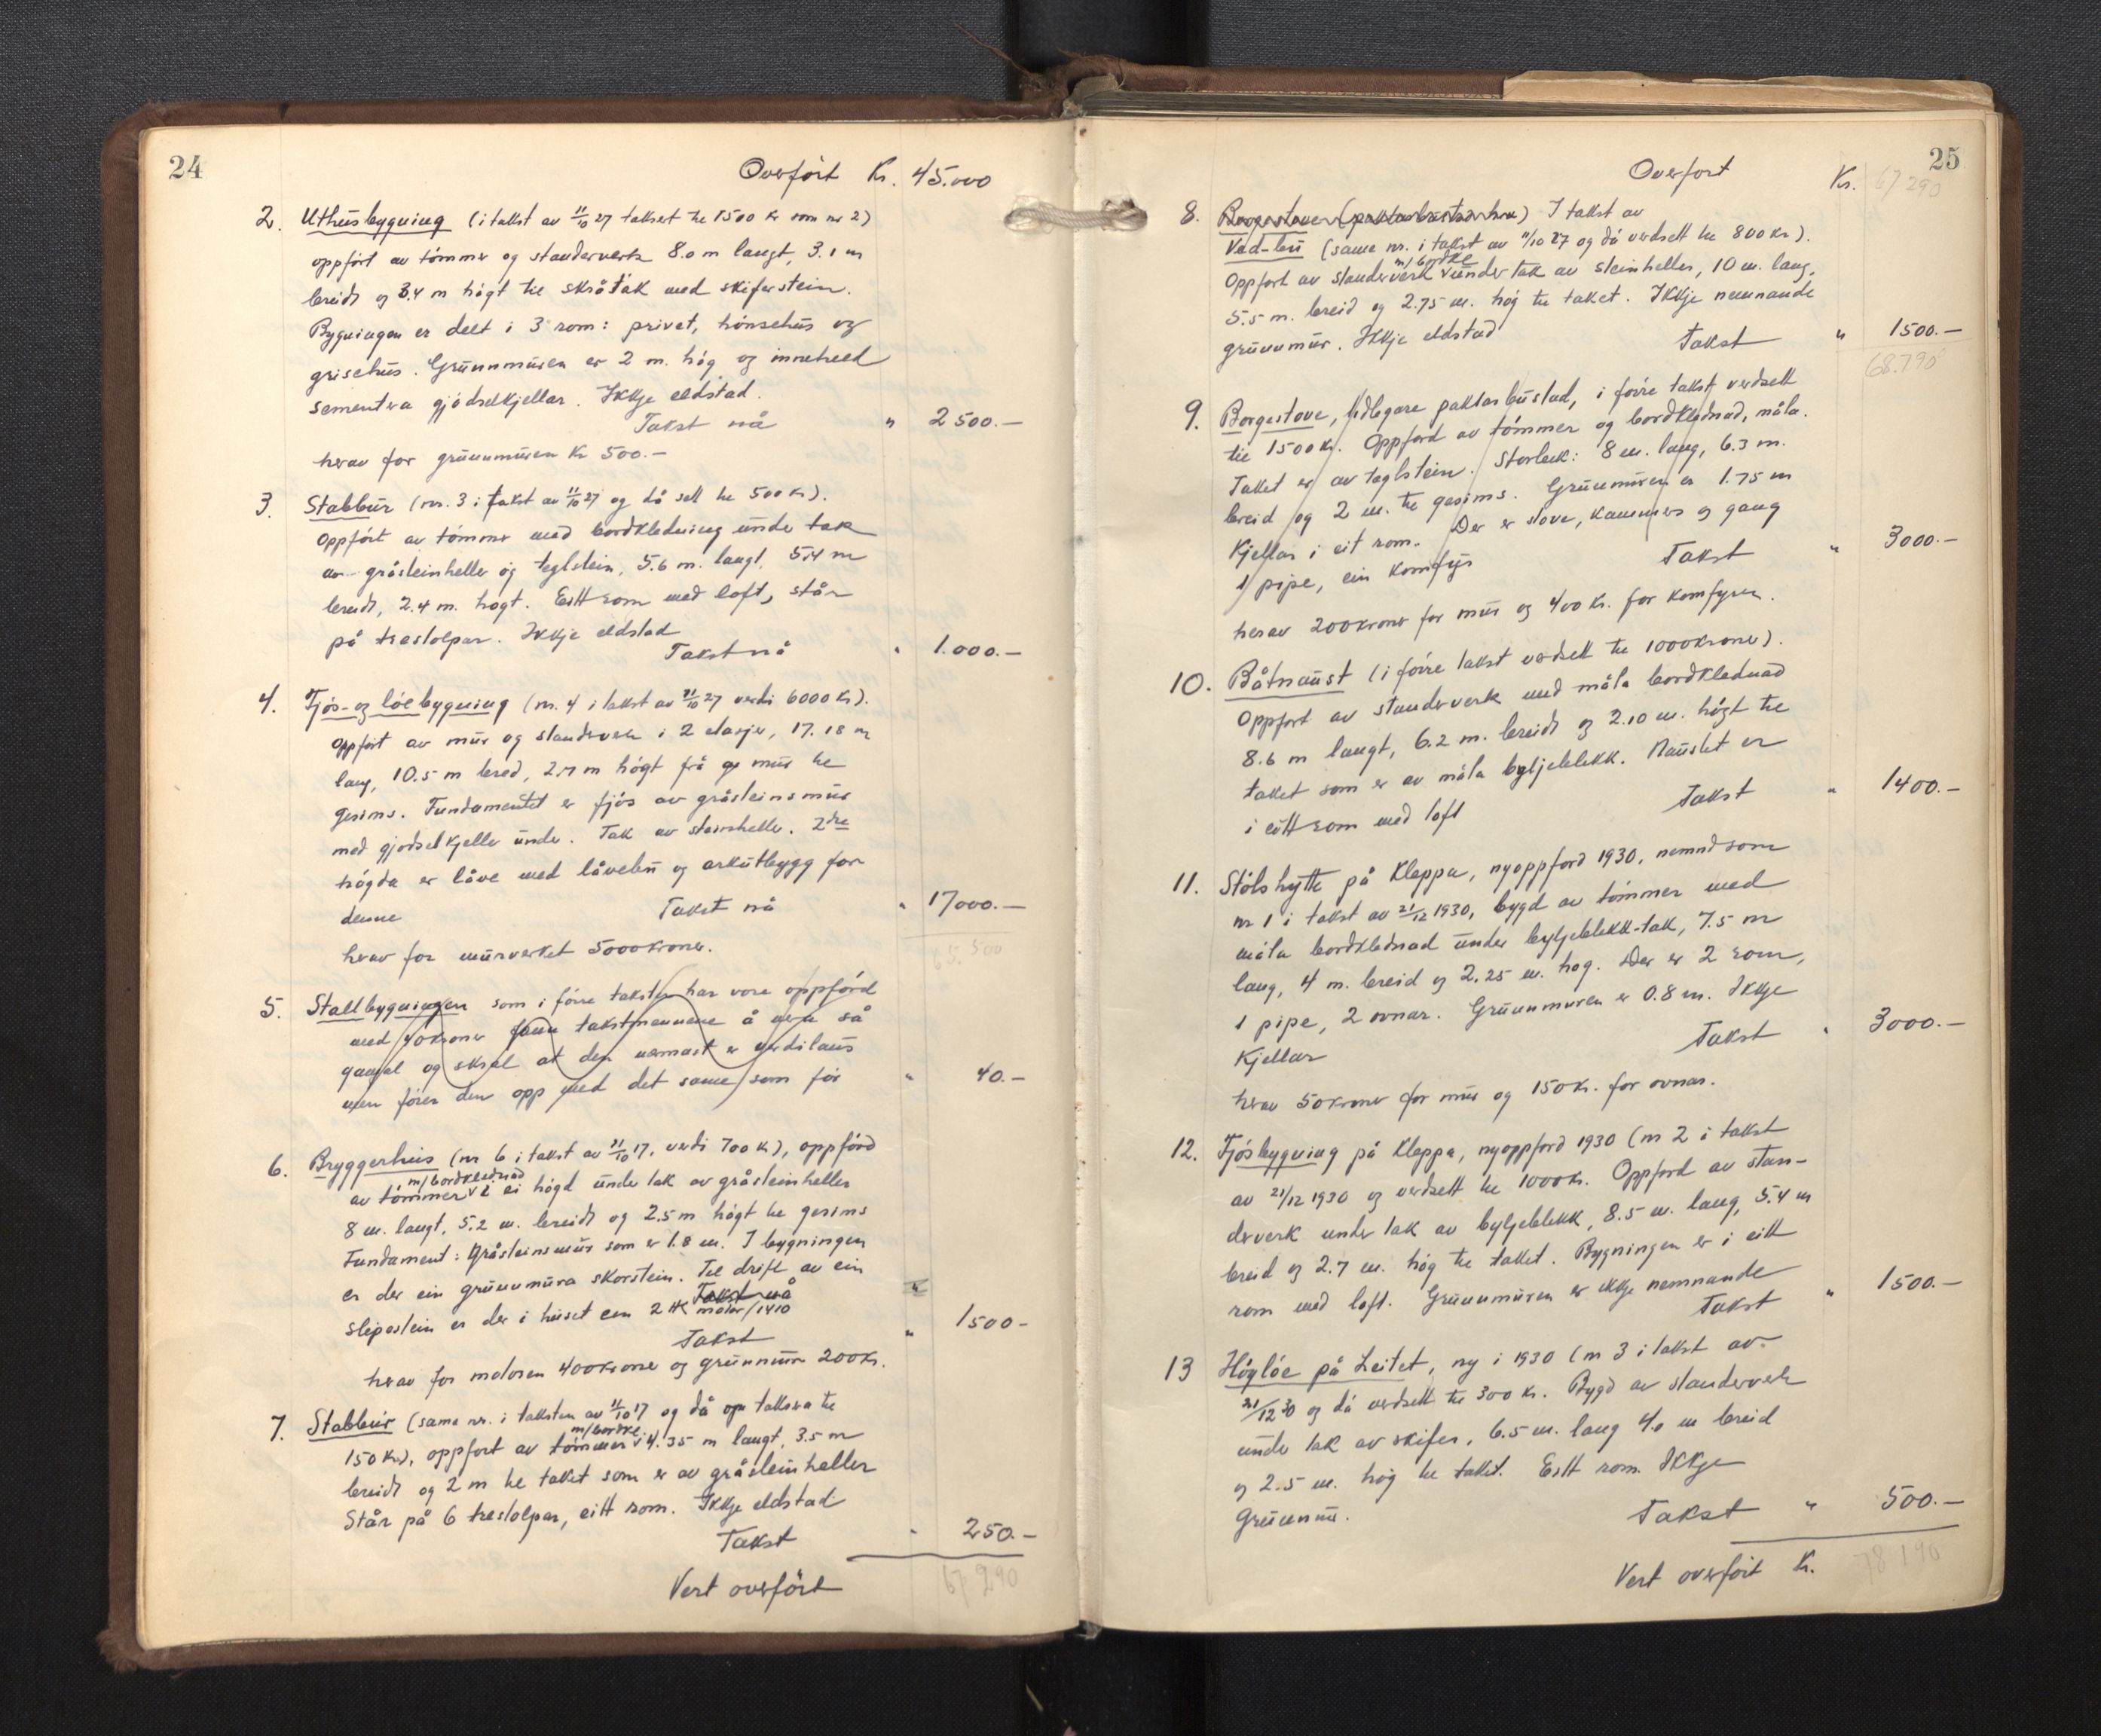 24
Overført Kr. 45.000
2. Uthusbygning (i takst av 11/10 27 taksert te 1500 kr som nr 2)
oppført av tømmer og standerverk 8.0 m langt, 3.1 m
breidt og 3.4 m høgt til skråtak med skiferstein.
Bygningen er delt i 3 rom: privet, hønsehus og
grisehus. Grunnmuren er 2 m. høg og inneheld
sementera gjødselkjellar. Ikkje eldstad.
Takst nå " 2500.—
herav for grunnmuren Kr 500.—
3. Stabbur (nr. 3 i takst av 11/10 27 og då sett te 500 kr).
Oppført av tømmer med bordkledning under tak
av gråsteinheller og teglstein, 5.6 m. langt, 5.4 m
breidt, 2.4 m. høgt. Eitt rom med loft, står
på trestolpar. Ikkje eldstad
Takst nå " 1.000.—
4. Fjøs- og løebygning (nr. 4 i takst av 11/10 27 verdi 6000 Kr).
Oppført av mur og standerverk i 2 etasjer, 17.18 m
lang, 10.5 m bred, 2.7 m høgt frå mur te
gesims. Fundamentet er fjøs av gråsteinsmur
med gjødselkjeller under. Tak av steinheller. 2dre
høgda er låve med låvebru og arkutbygg for
denne Takst nå " 17000.—
herav for murverket 5000 kroner.
65.500
5. Stallbygningen som i førre takster har vore oppførd
med 40 kroner fann takstmennene å vera så
gamal og skral at den nærmast er verdilaus
men fører den opp med det same som før " 40.—
6. Bryggerhus (nr 6 i takst av 11/10 17, verdi 700 Kr), oppførd
m/bordkleidnad
av tømmer v i ei høgd under tak av gråsteinheller
8 m. langt, 5.2 m. breidt og 2.5 m høgt te gesims
Fundament: Gråsteinsmur som er 1.8 m. I bygningen
er der ein grunnmura skorstein. Til drift av ein
Takst nå "
slipestein er der i huset ein 2 HK motor/1410
Takst " 1500-
herav for motoren 400 kroner og grunnmur 200 Kr.
7. Stabbur (same nr. i taksten av 11/10 17 og då opp taksera te
m/bordkl
150 Kr), oppført av tømmer v 4.35 m langt, 3.5 m
breidt og 2 m te taket som er av gråsteinheller
Står på 6 trestolpar, eitt rom. Ikkje eldstad
Takst " 250.—
Vert overført 67 290
25
Overført Kr. 67 290
8. Borgestove (paktarbustad) I takst av
Ved-bu (same nr. i takst av 11/10 27 og då verdsett te 800 Kr).
m/bordkl
Oppført av standerverk v under tak av steinheller, 10 m. lang,
5.5 m. breid og 2.75 m. høg te taket. Ikkje nemnande
grunnmur. Ikkje eldstad Takst " 1500.—
68.790
9. Borgestove, tidlegare paktarbustad, i førre takst verdsett
til 1500 Kr. Oppførd av tømmer og bordklednad, måla.
Taket er av teglstein. Storleik: 8 m. lang, 6.3 m.
breid og 2 m. te gesims. Grunnmuren er 1.75 m
Kjellar i eit rom. Der er stove, kammers og gang
1 pipe, ein komfyr Takst " 3000.—
herav 200 kroner for mur og 400 kr. for komfyren.
10. Båtnaust (i førre takst verdsett te 1000 kroner).
Oppført av standerverk med måla bordklednad
8.6 m langt, 6.2 m. breidt og 2.10 m. høgt te
taket som er av måla bylgjeblekk. Naustet er
i eitt rom med loft Takst " 1400.—
11. Stølshytte på Kleppa, nyoppførd 1930, nemnd som
nr 1 i takst av 21/12 1930, bygd av tømmer med
måla bordklednad under bylgjeblekk-tak, 7.5 m
lang, 4 m. breid og 2.25 m. høg. Der er 2 rom,
1 pipe, 2 ovnar. Grunnmuren er 0.8 m. Ikkje
kjellar Takst " 3000.—
herav 50 kroner for mur og 150 Kr. for ovnar.
12. Fjøsbygning på Kleppa, nyoppførd 1930 (nr 2 i takst
av 21/12 1930 og verdsett te 1000 Kr. Oppførd av stan-
derverk under tak av bylgjeblekk, 8.5 m. lang, 5.4 m
breid og 2.7 m. høg te taket. Bygningen er i eitt
rom med loft. Grunnmuren er ikkje nemnande
Takst " 1500.—
13 Høyløe på Leitet, ny i 1930 (nr 3 i takst av
21/12 30 og då verdsett te 300 Kr. Bygd av standerverk
under tak av skifer, 6.5 m. lang 4.0 m breid
og 2.5 m. høg te taket. Eitt rom. Ikkje
Grunnmur. Takst " 500.—
Vert overført Kr. 78 190